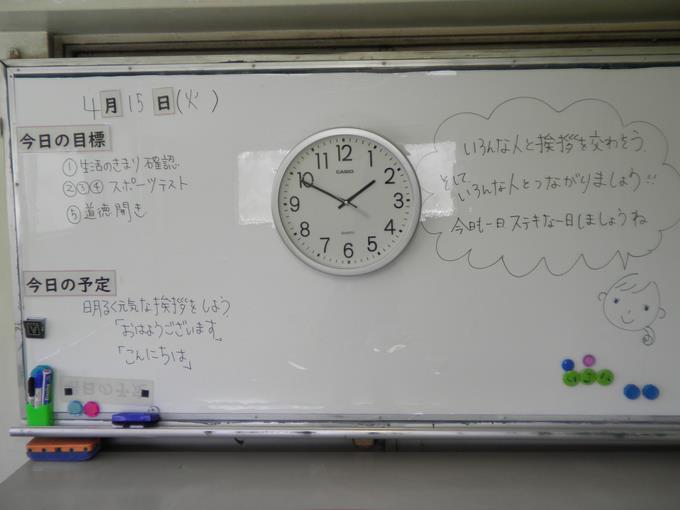 4月15日(火)
今日の目標
①生活のきまり確認
②③④ スポーツテスト
⑤道徳開き
今日の予定
明るく元気な挨拶をしよう
「おはようございます」
「こんにちは」
12
1
2
3
4
5
6
7
8
9
10
11
CASIO
QUARTZ
いろんな人と挨拶を交わそう。
そして
いろんな人とつながりましょう!!
今日も一日ステキな一日しましょうね